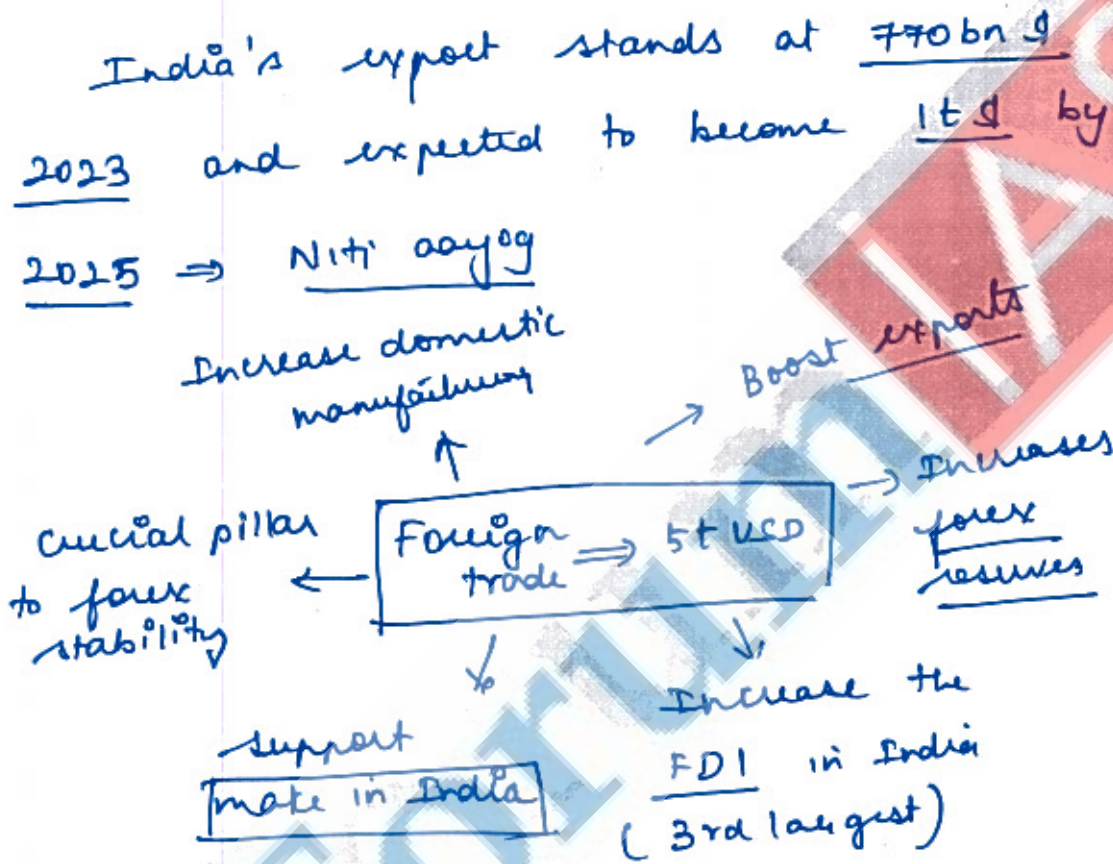 India's export stands at 770bn $
2023 and expected to become 1t $ by
2025 ⇒ Niti aayog
Increase domestic
manufacturing
Boost exports
Crucial pillar
to forex
stability
Foreign
trade ⇒ 5t USD
Increases
forex
reserves
support
make in India
Increase the
FDI in India
(3rd largest)
Forum IAS